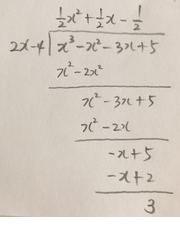 ½x² + ½x - ½
2x-4 | x³ - x² - 3x + 5
x² - 2x²
x² - 3x + 5
x² - 2x
-x + 5
-x + 2
3